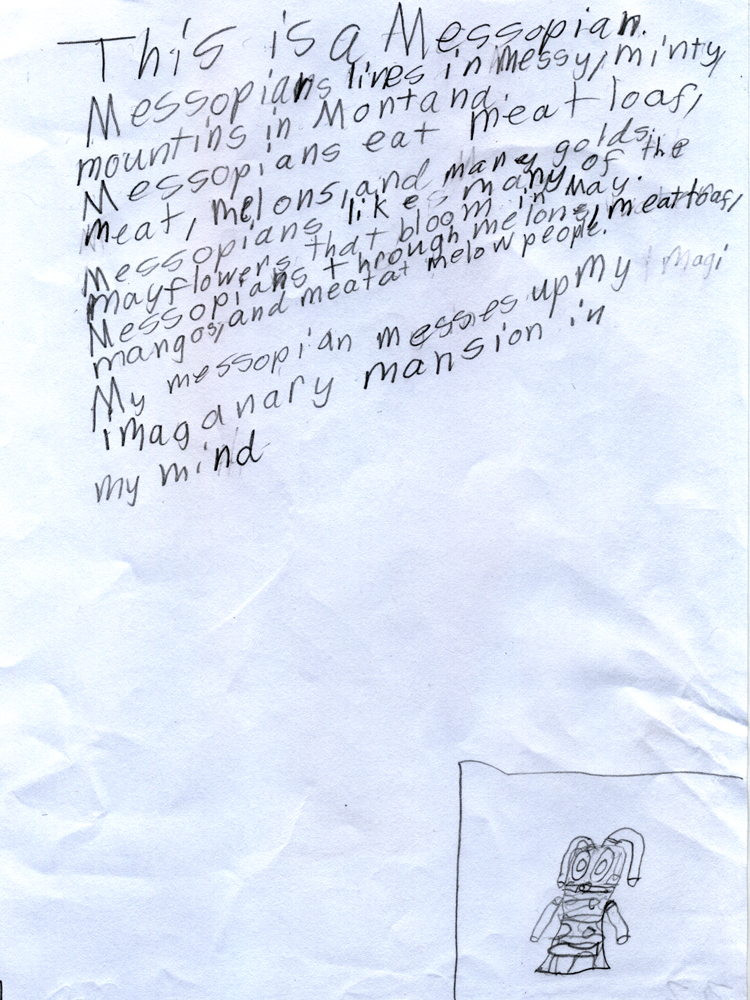 This is a Messopian.
Messopians lives in messy, minty,
mountins in Montana.
Messopians eat meat loaf,
meat, melons, and many golds.
Messopians likes many of the
mayflowers that bloom in May.
Messopians through melons, meat loaf,
mangos, and meat at melow people.
My messopian messes up my
imaganary mansion in
my mind